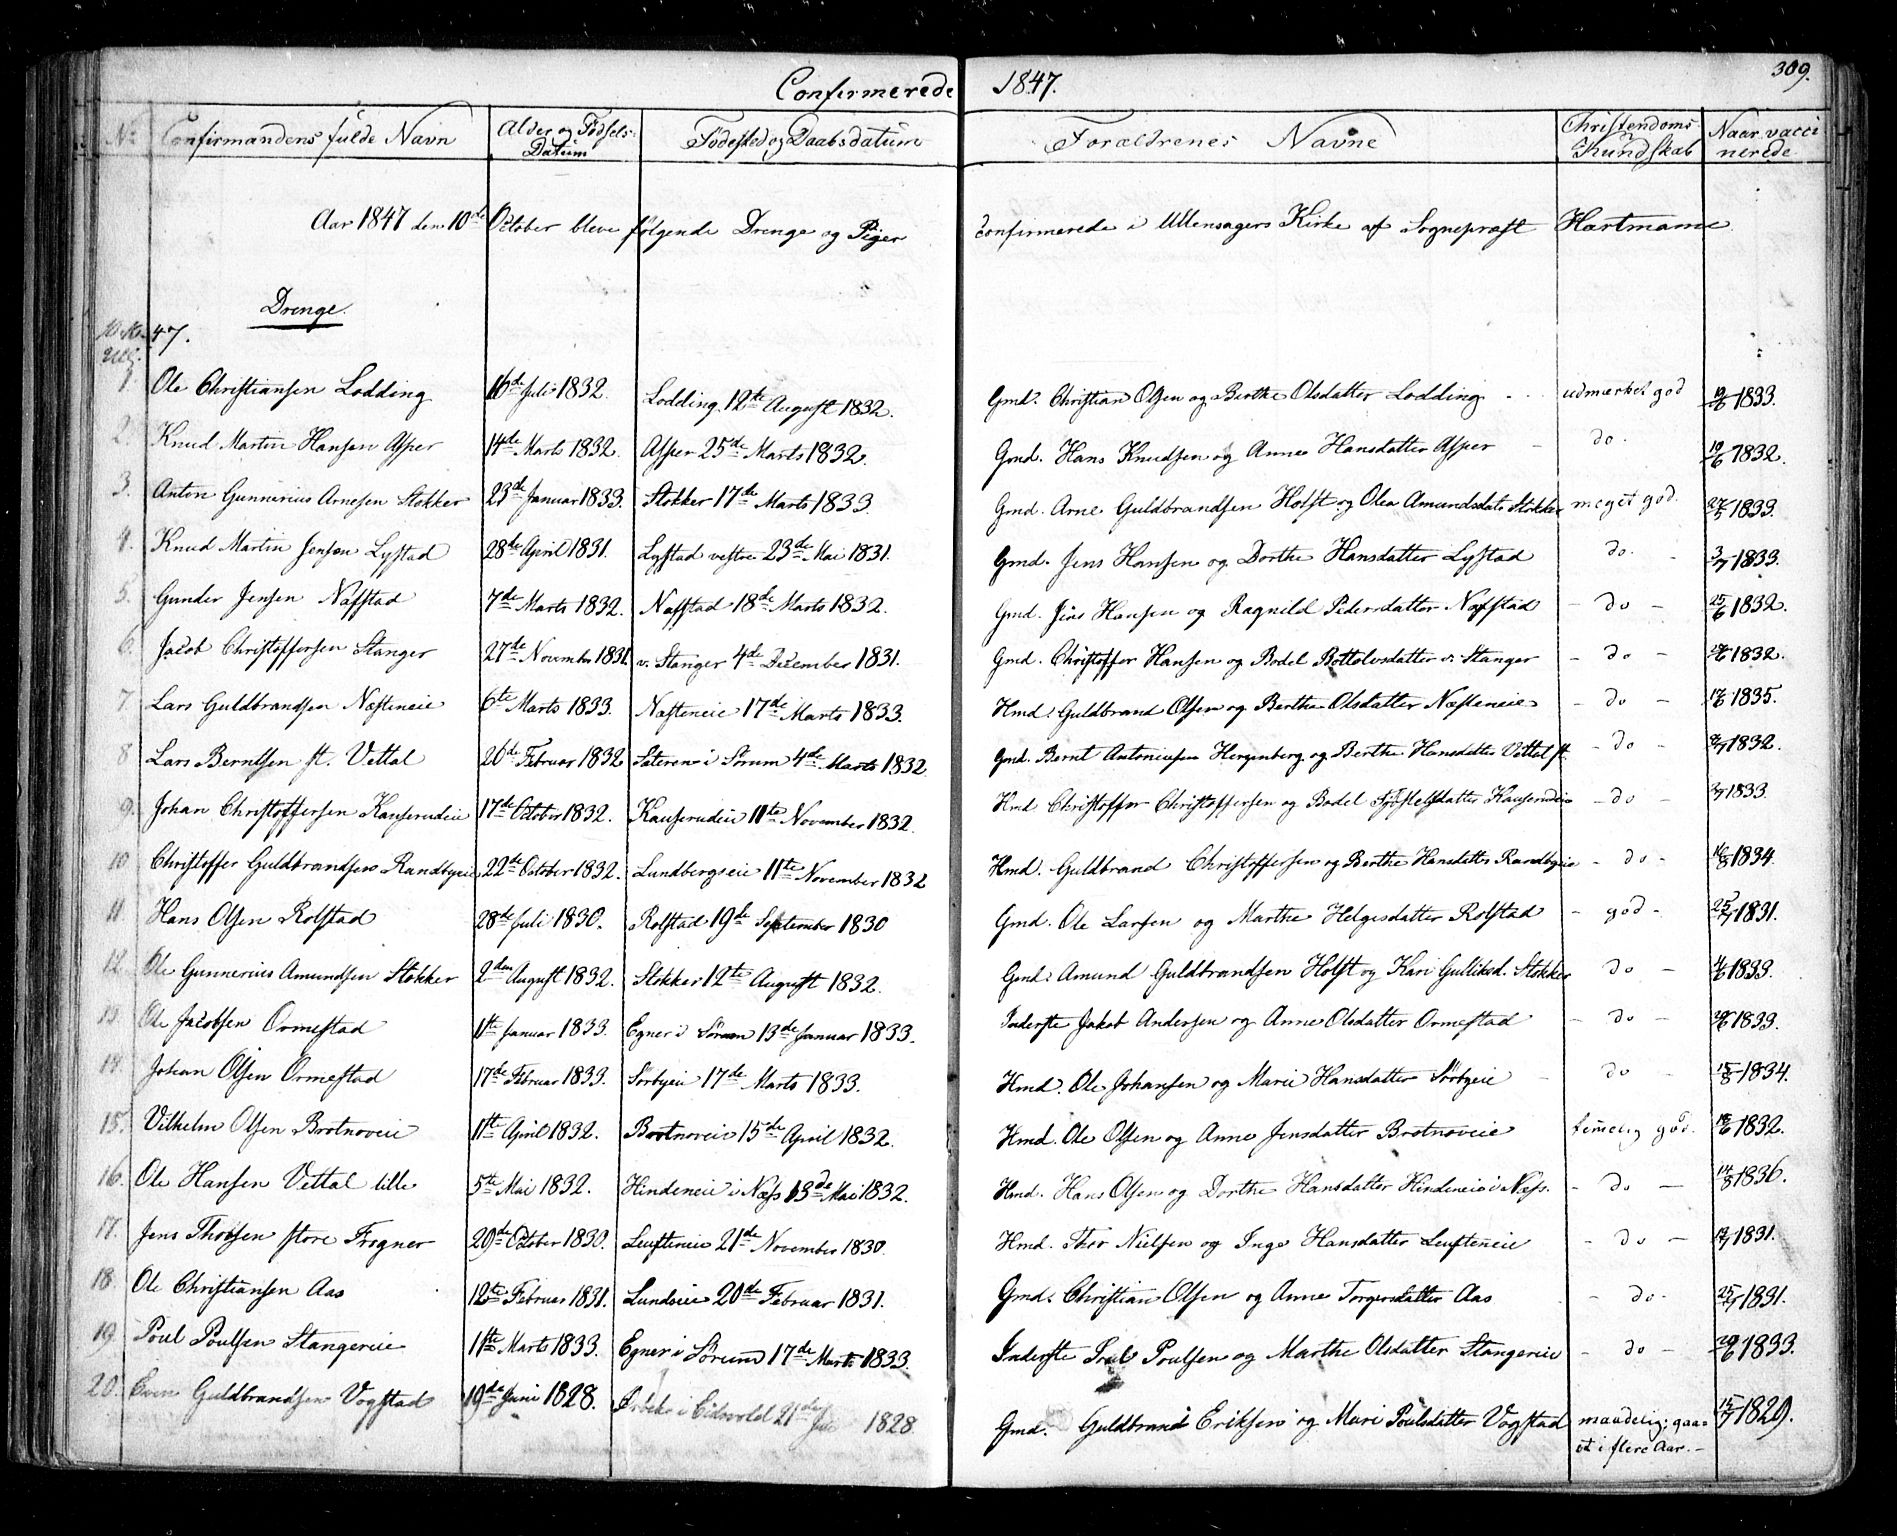 Confirmerede 1847. 309.
No Confirmandens fulde Navn Alder og Fødsels- Datum Fødested og Daabsdatum Forældrenes Navne Christendoms- Kundskab Naar vacci nerede
Aar 1847 den 10de October bleve følgende Drenge og Piger confirmerede i Ullensagers Kirke af Sognepræst Hartmann
Drenge.
47.
1. Ole Christiansen Lodding 16de Juli 1832. Lodding 12te August 1832. Gmd. Christian Olsen og Berthe Olsdatter Lodding udmærket god 19/6 1833.
2. Knud Martin Hansen Asper 14de Marts 1832. Asper 25de Marts 1832. Gmd. Hans Knudsen og Anne Hansdatter Asper do. 19/6 1832.
3. Anton Gunnerius Arnesen Stokker 23de Januar 1833. Stokker 17de Marts 1833 Gmd. Arne Guldbrandsen Holst og Olea Amundsdatr Stokker meget god. 27/5 1833.
4. Knud Martin Jensen Lystad 28de April 1831. Lystad vestre 23de Mai 1831. Gmd. Jens Hansen og Dorthe Hansdatter Lystad do. - 3/7 1833.
5. Gunder Jensen Nafstad 7de Marts 1832. Nafstad 18de Marts 1832. Gmd. Jens Hansen og Ragnild Pedersdatter Nafstad - do - 25/6 1832.
6. Jacob Christoffersen Stanger 27de Novembr 1831. v. Stanger 4de December 1831. Gmd. Christoffer Hansen og Bodel Bottolvsdatter v. Stanger - do - 1832.
7. Lars Guldbrandsen Næsteneie 6te Marts 1833. Næsteneie 17de Marts 1833. Hmd. Guldbrand Olsen og Berthe Olsdatter Næsteneie - do - 1835.
8 Lars Berntsen st. Vettal 26de Februar 1832 Sateren i Sørum 4de Marts 1832 Gmd. Bernt Antoniusen Hexenberg og Berthe Hansdatter Vettal st. - do - 1832.
9. Johan Christoffersen Kauserudeie 17de October 1832. Kauserudeie 11te November 1832. Hmd Christoffer Christoffersen og Bodel Kauserudeie - do - 1833
10 Christoffer Guldbrandsen Randbyeie 22de October 1832. Lundbergseie 11te November 1832 Hmd. Guldbrand Christoffersen og Berthe Hansdatter Randbyeie - do - 16/8 1834.
11 Hans Olsen Rolstad 28de Juli 1830. Rolstad 19de September 1830 Gmd. Ole Larsen og Marthe Helgesdatter Rolstad - god - 25/7 1831.
12 Ole Gunnerius Amundsen Stokker 2den August 1832. Stokker 12te August 1832. Gmd. Amund Guldbrandsen Holst og Kari Gulliksd. Stokker do - 4/6 1833.
13 Ole Jacobsen Ormestad 1te Januar 1833. Egner i Sörum 13de Januar 1833. Inderste Jakob Andersen og Anne Olsdatter Ormestad - do - 1833.
14 Johan Olsen Ormestad 17de Februar 1833. Sörbyeie 17de Marts 1833. Hmd. Ole Johansen og Marie Hansdatter Sörbyeie - do - 15/8 1834.
15. Vilhelm Olsen Brotnoveie 1te April 1832. Brotnoveie 15de April 1832. Hmd. Ole Olsen og Anne Jensdatter Brotnoveie temelig god. 1832.
16. Ole Hansen Vettal lille 5te Mai 1832. Hindeneie i Næss 13de Mai 1832. Hmd. Hans Olsen og Dorthe Hansdatter Hindeneie i Næss. - do - 14/8 1836.
17. Jens Thorsen store Frogner 29de October 1830. Leufteneie 21de November 1830. Hmd. Thor Nielsen og Inge Hansdatter Leufteneie - do - 1831.
18. Ole Christiansen Aas 12te Februar 1831. Lundseie 20de Februar 1831. Gmd. Christian Olsen og Anne Torgersdatter Aas - do - 25/7 1831.
19 Poul Poulsen Stangereie 1te Marts 1833. Egner i Sörum 17de Marts 1833. Inderste Poul Poulsen og Marthe Olsdatter Stangereie - do - 1833.
20. Even Guldbrandsen Vogstad 19de Juni 1828. i Eidsvold 21de 1828. Gmd. Guldbrand Eriksen og Mari Poulsdatter Vogstad maadelig; gaa- 15/7 1829.
et i flere Aar. -